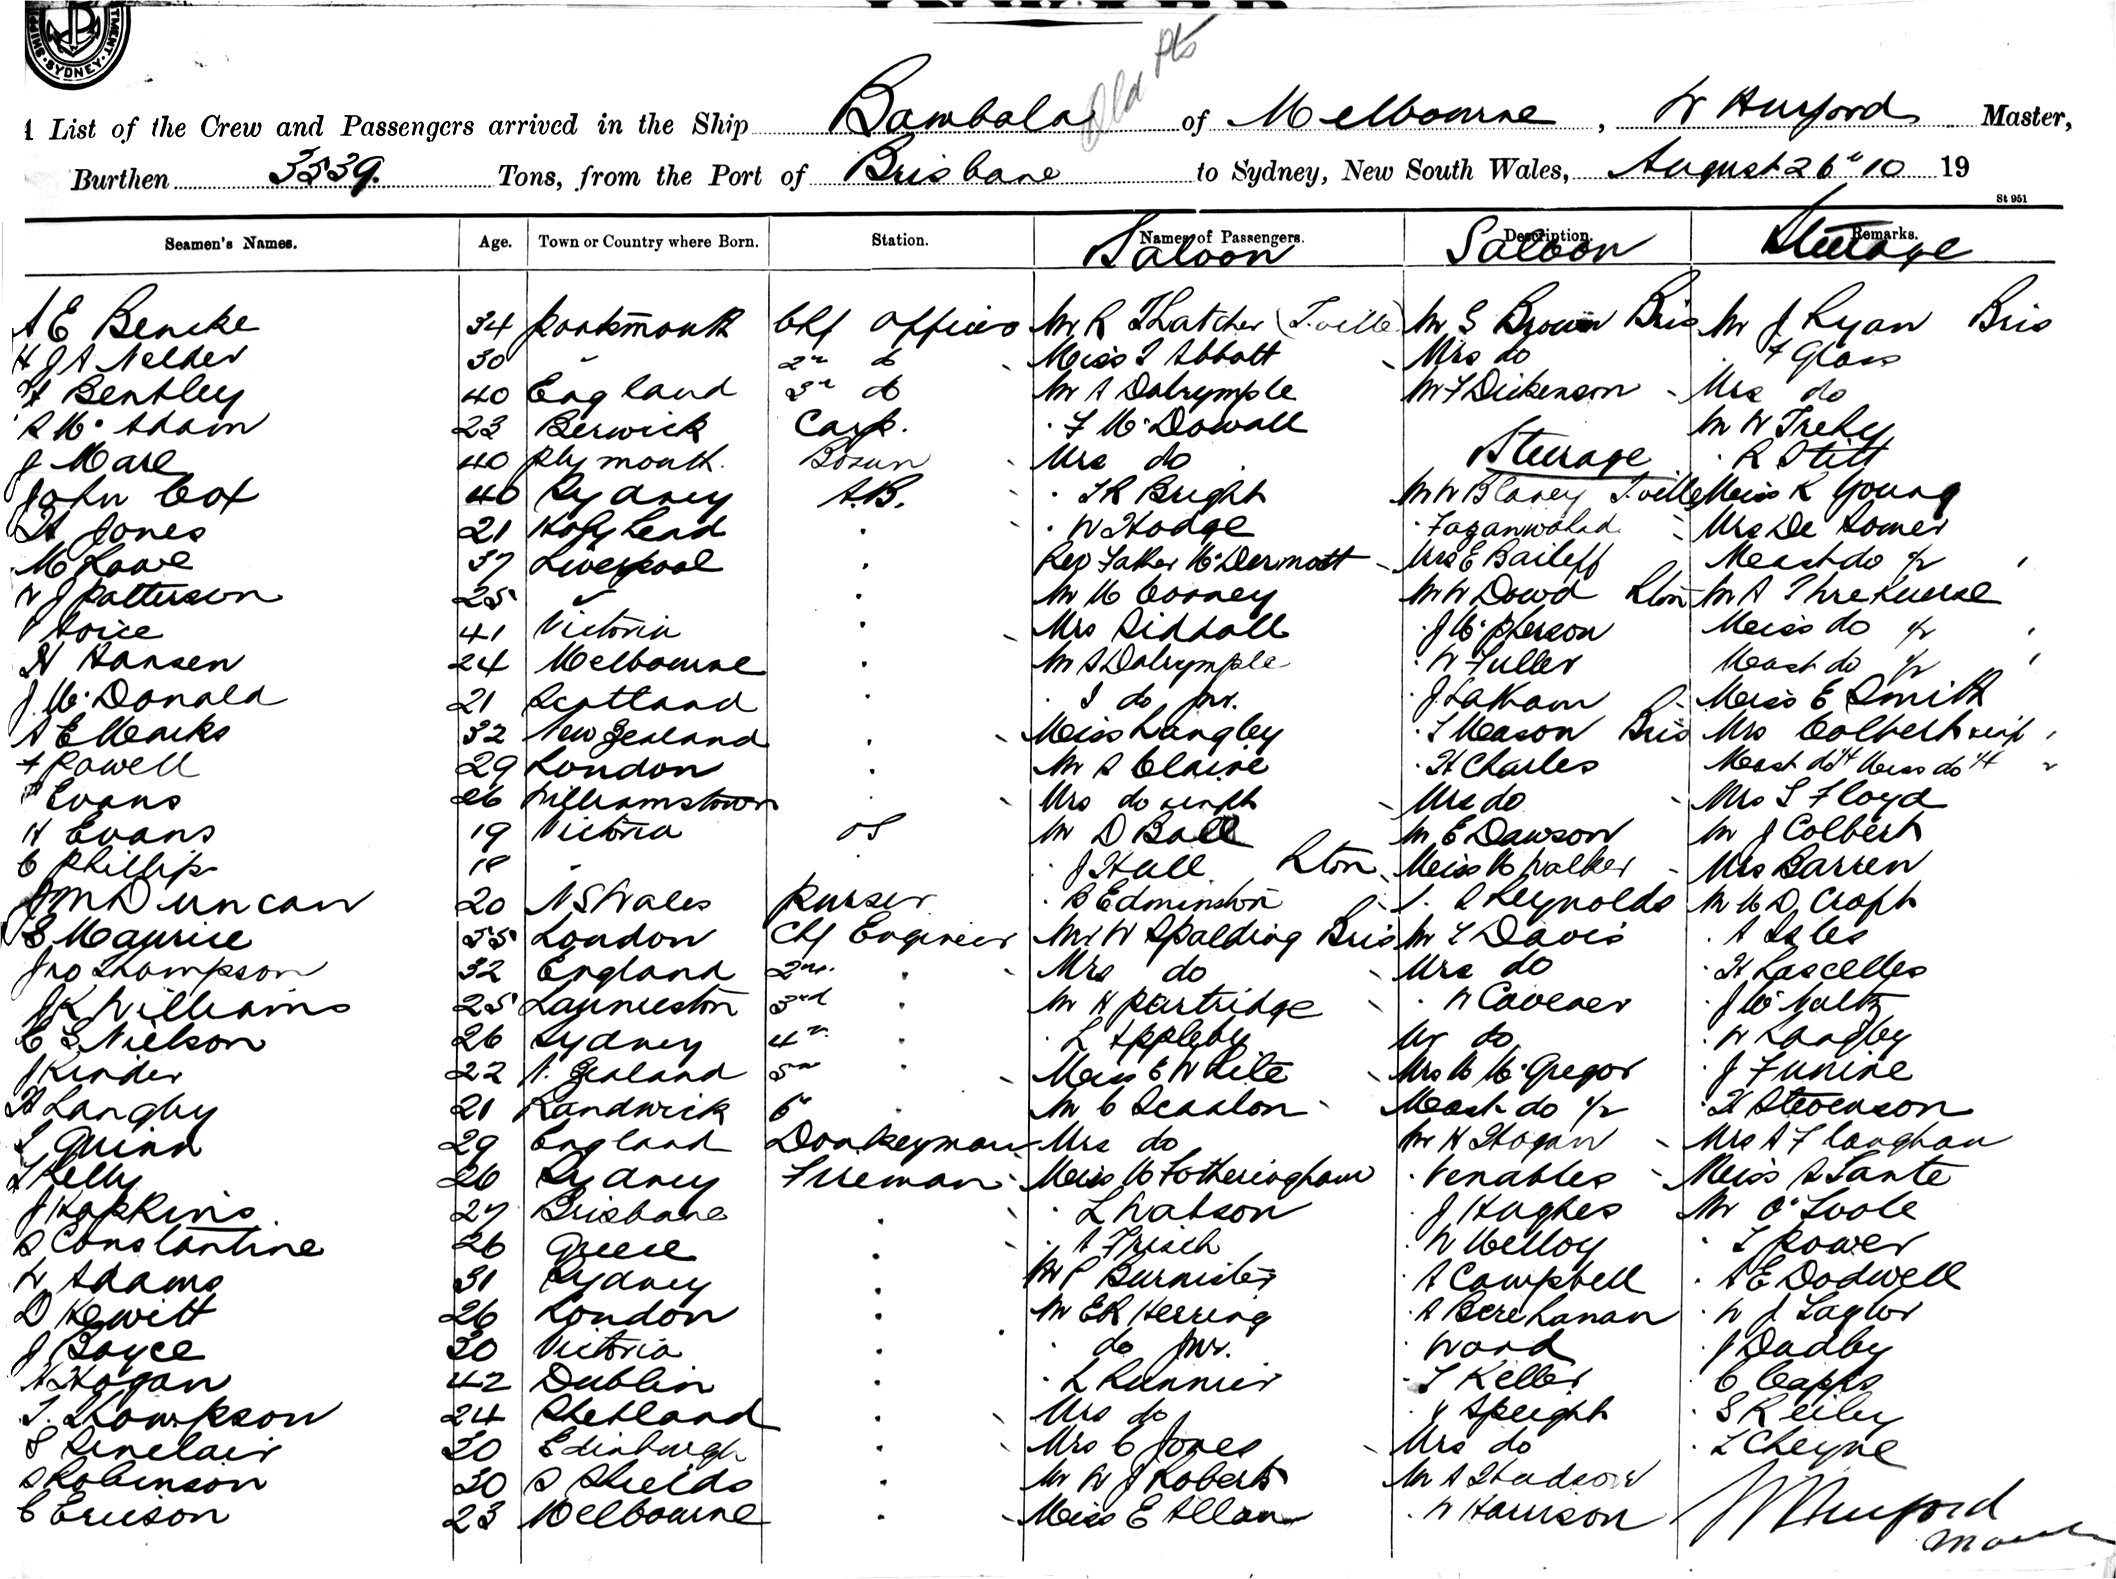 SYDNEY
Old Pts
List of the Crew and Passengers arrived in the Ship Bombala of Melbourne, W Hurford Master,
Burthen 3539. Tons, from the Port of Brisbane to Sydney, New South Wales, August 26th 10 19
St 951
Seamen's Names. Age. Town or Country where Born. Station. Names of Passengers. Description. Remarks.
Saloon Saloon Steerage
A E Bencke 34 Portsmouth Chf Officer Mr R Thatcher (T.ville) Mr S Brown Bris Mr J Ryan Bris
H J A Nelder 30 " 2nd do Miss I Abbott Mrs do F Glass
H Bentley 40 England 3rd do Mr A Dalrymple Mr F Dickenson Mrs do
R McAdam 23 Berwick Carp. F McDowall Mr W Trehy
J Mare 40 Plymouth. Bosun Mrs do Steerage R Stitt
John Cox 40 Sydney A.B. T R Bright Mr W Blaney T.ville Miss K Young
H Jones 21 Holyhead W Hodge Mrs De Homer
M Lowe 37 Liverpool Rev Father McDermott Mrs E Baileff Mast do
W J Patterson 25 " Mr M Cooney Mr W Dowd Rton Mr A
41 Victoria Mrs Siddall J McPherson Miss do
H Hansen 24 Melbourne Mr S Dalrymple W Fuller Mast do
J. McDonald 21 Scotland I do jnr. J Latham Miss E Smith
A E Marks 32 New Zealand Miss Langley T Meason Bris Mrs Colbert & inft
F Powell 29 London Mr A Claire H Charles Mast do Miss do
Evans 26 Williamstown Mrs do & infft Mrs do Mrs S Floyd
H Evans 19 Victoria OS Mr D Ball Mr E Dawson Mr J Colbert
C Phillips 18 " J Hall Rton Miss M Walker Mrs Barren
J M Duncan 20 N S Wales Purser B Edminston A Reynolds Mr M D Croft
S Maurice 55 London Chf Engineer Mr W Spalding Bris Mr L Davis A Isles
Jno Thompson 32 England 2nd. Mrs do Mrs do H Lascelles
J K Williams 25 Launceston 3rd Mr H Partridge W Cavener
C S Nielson 26 Sydney 4th L Appleby Mr do W Langby
J Kinder 22 N. Zealand 5th Miss E White Mrs M McGregor J Funine
H Langby 21 Randwick 6th Mr C Scanlon Mast do H Stevenson
L Quinn 29 England Donkeyman Mrs do Mr H Hogan Mrs A Flanghan
T Kelly 26 Sydney Fireman Miss M Fotheringham Venables Miss A Tante
J Hopkins 27 Brisbane L Watson J Hughes Mr O'Toole
S Constantine 26 Greece A Frisch W Melloy T Power
W Adams 31 Sydney Mr P Burnister A Campbell A E Dodwell
D Hewitt 26 London Mr E R Herring W J Taylor
J Boyce 30 Victoria do jnr. Ward J Dadby
H Hogan 42 Dublin T Keller C Capps
T. Thompson 24 Shetland Mrs do Speight S Reiley
S Sinclair 30 Edinburgh Mrs C Jones Mrs do L Cheyne
S Robinson 30 S Shields Mr W J Roberts Mr A Hudson
C Ericson 23 Melbourne Miss E Allan W Harrison W Hurford
Master